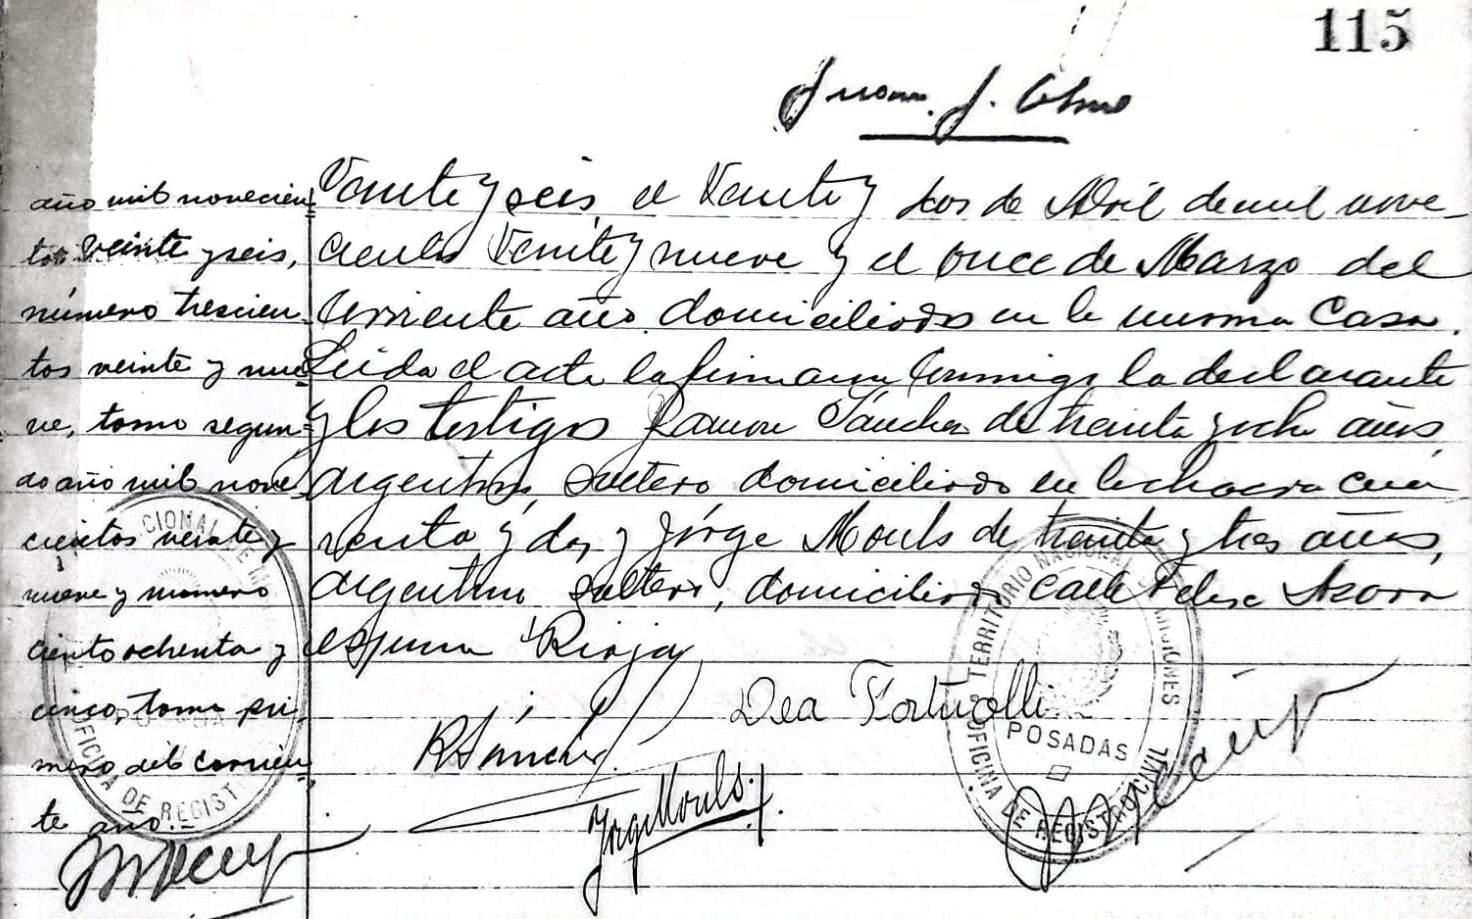 115
Juan J.
año mil novecien=
tos veinte y seis,
número trescien
tos veinte y nue=
ve, tomo segun=
do año mil nove
cientos veinte y
nueve y número
ciento ochenta y
cinco, tomo pri
mero del corrien
te año.-
Veinte y seis, el Veinte y dos de Abril de mil nove-
cientos Veinte y nueve y el once de Marzo del
corriente año domiciliados en la misma Casa.
Leida el acta la firmaron conmigo la declarante
y los testigos Ramon Sánchez de treinta y ocho años,
argentino, soltero domiciliado en la chacra cua
renta y dos y Jorge Mouls de treinta y tres años,
argentino soltero, domiciliado calle Felix Azara
esquina Rioja
RSanchez
Dea
JorgeMouls
OFICINA DE REGISTRO CIVIL
TERRITORIO NACIONAL DE MISIONES
POSADAS
CIONAL DE M
OFICINA DE REGIST